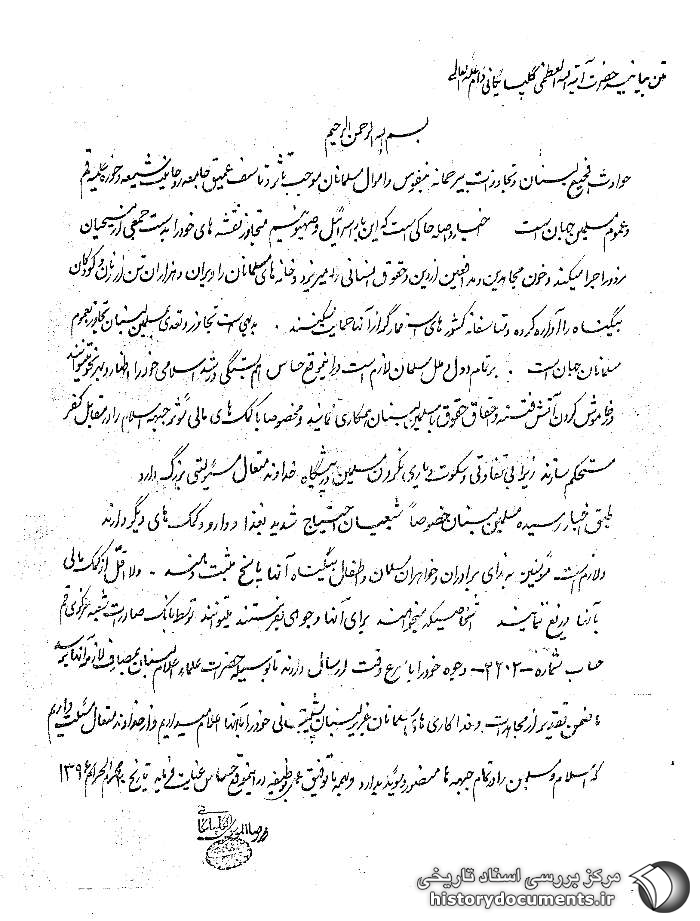 متن بیانیه حضرت آیة الله العظمی گلپایگانی دام ظله العالی
بسم الله الرحمن الرحیم
حوادث فجیع لبنان و تجاوزات بیرحمانه بنفوس و اموال مسلمانان موجب تأثر و تأسف عمیق جامعه روحانیت شیعه و حوزه علمیه قم
و عموم مسلمین جهان است اخبار واصله حاکی است که این بار اسرائیل و صهیونیسم متجاوز نقشه های خود را بدست جمعی از مسیحیان
مزدور اجرا میکند و خون مجاهدین و مدافعین از دین و حقوق انسانی را میریزد و خانه های مسلمانان را ویران و هزاران تن از زن و کودکان
بیگناه را آواره کرده و متأسفانه کشورهای استعمارگر از آنها حمایت میکنند . بدیهی است تجاوز و تعدی بمسلمین لبنان تجاوز بعموم
مسلمانان جهان است . بر تمام دول و ملل مسلمان لازم است در این موقع حساس همبستگی و رشد اسلامی خود را اظهار و بهر نحو میتوانند
در خاموش کردن آتش فتنه و احقاق حقوق با مسلمین لبنان همکاری نمایند و مخصوصا با کمک های مالی مؤثر جبهه اسلام را در مقابل کفر
مستحکم سازند زیرا بی تفاوتی و سکوت و یاری نکردن مسلمین در پیشگاه خداوند متعال مسئولیتی بزرگ دارد
طبق اخبار رسیده مسلمین لبنان خصوصاً شیعیان احتیاج شدید بغذا و دارو و کمک های دیگر دارند
و لازم است مؤمنین به ندای برادران و خواهران مسلمان و اطفال بیگناه آنها پاسخ مثبت دهند . و لااقل از کمک مالی
بآنها دریغ ننمایند اشخاصیکه میخواهند برای آنها وجوهی بفرستند میتوانند توسط بانک صادرات شعبه مرکزی قم
حساب شماره -۲۲۰۲- وجوه خود را با اسرع وقت ارسال دارند تا بوسیله حضرات علماء اعلام لبنان بمصارف لازمه آنها برسد
ضمن تقدیر از مجاهدات و فداکاری های مسلمانان عزیز لبنان پشتیبانی خود را با آنها اعلام میداریم و از خداوند متعال مسئلت داریم
که اسلام و مسلمین را در تمام جبهه ها منصور و مؤید بدارد و بهمه ما توفیق عمل بوظیفه در این موقع حساس عنایت فرماید تاریخ محرم الحرام ۱۳۹۶
محمد رضا الموسوی الگلپایگانی
مرکز بررسی اسناد تاریخی
historydocuments.ir